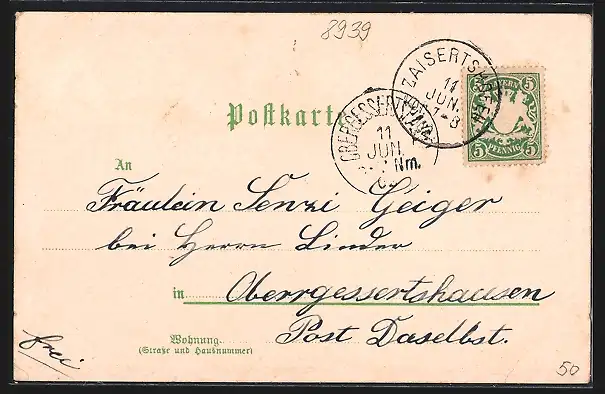 8939
ZAISERTSHOFEN
11
JUN.
7-8
BAYERN
5 5
5 5
PFENNIG
Postkarte
OBERGESSERTSHAUSEN
11
JUN.
Nm.
An
Fräulein Senzi Geiger
bei Herrn Linder
in Oberrgessertshausen
Wohnung
(Straße und Hausnummer)
Post Daselbst.
frei
50